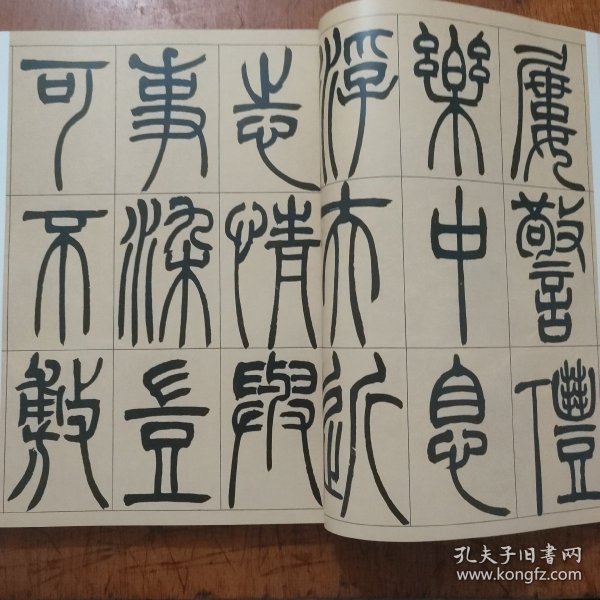 屢警禮
樂中息
浮夫近
志情與
事染豈
可不敷
孔夫子旧書网
www.kongfz.com